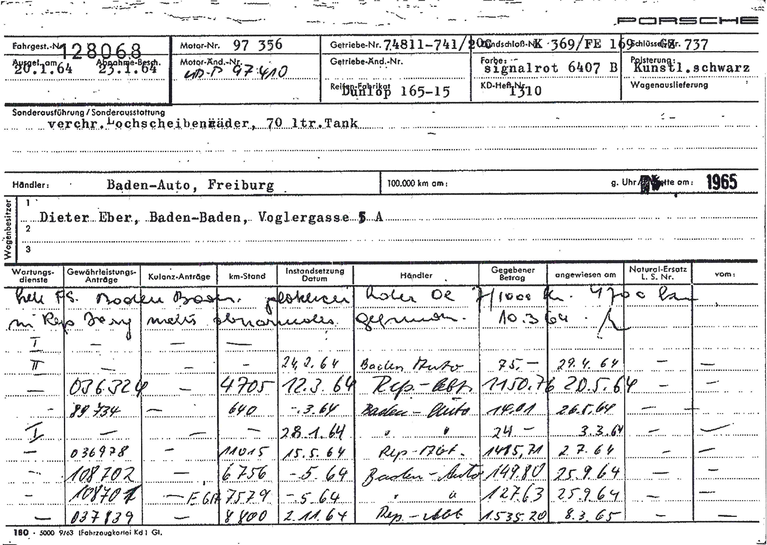 PORSCHE
Fahrgest.-Nr. 128068 Motor-Nr. 97 356 Getriebe-Nr. 74811-741/ K 369/FE 169 737
Ausgel. am 20.1.64 Abnahme-Besch. 23.1.64 Motor-Änd.-Nr. 97410 Getriebe-Änd.-Nr. Farbe: signalrot 6407 B Polsterung: Kunstl.schwarz
Reifen-Fabrikat Dunlop 165-15 KD-Heft-Nr. 1310 Wagenauslieferung
Sonderausführung / Sonderausstattung
verchr. Lochscheibenräder, 70 ltr.Tank
Händler: Baden-Auto, Freiburg 100.000 km am: g. Uhr/ am: 1965
Wagenbesitzer
1 Dieter Eber, Baden-Baden, Voglergasse 5 A
2
3
Wartungs-dienste Gewährleistungs-Anträge Kulanz-Anträge km-Stand Instandsetzung Datum Händler Gegebener Betrag angewiesen am Natural-Ersatz L. S. Nr. vom:
Baden Baden. 4700 km
10.3.64
I — — —
II 24.2.64 Baden Auto 75.— 29.4.64 — —
— 036324 — 4705 12.3.64 Rep-Abt 1150.76 20.5.64 — —
- 89734 — 640 -.3.64 Baden-Auto 14.01 26.5.64 — —
I — — — 28.1.64 " " 24 — 3.3.64 — —
— 036978 — 11015 15.5.64 Rep-Abt. 1415,71 2.7.64 — —
— 108702 — 6756 -.5.64 Baden-Auto 149.80 25.9.64 — —
- 108701 — 7529 -.5.64 " " 127.63 25.9.64 — —
— 037839 — 8800 2.11.64 Rep-Abt 1.535.20 8.3.65 — —
180 - 5000 9/63 (Fahrzeugkartei Kd) Gt.